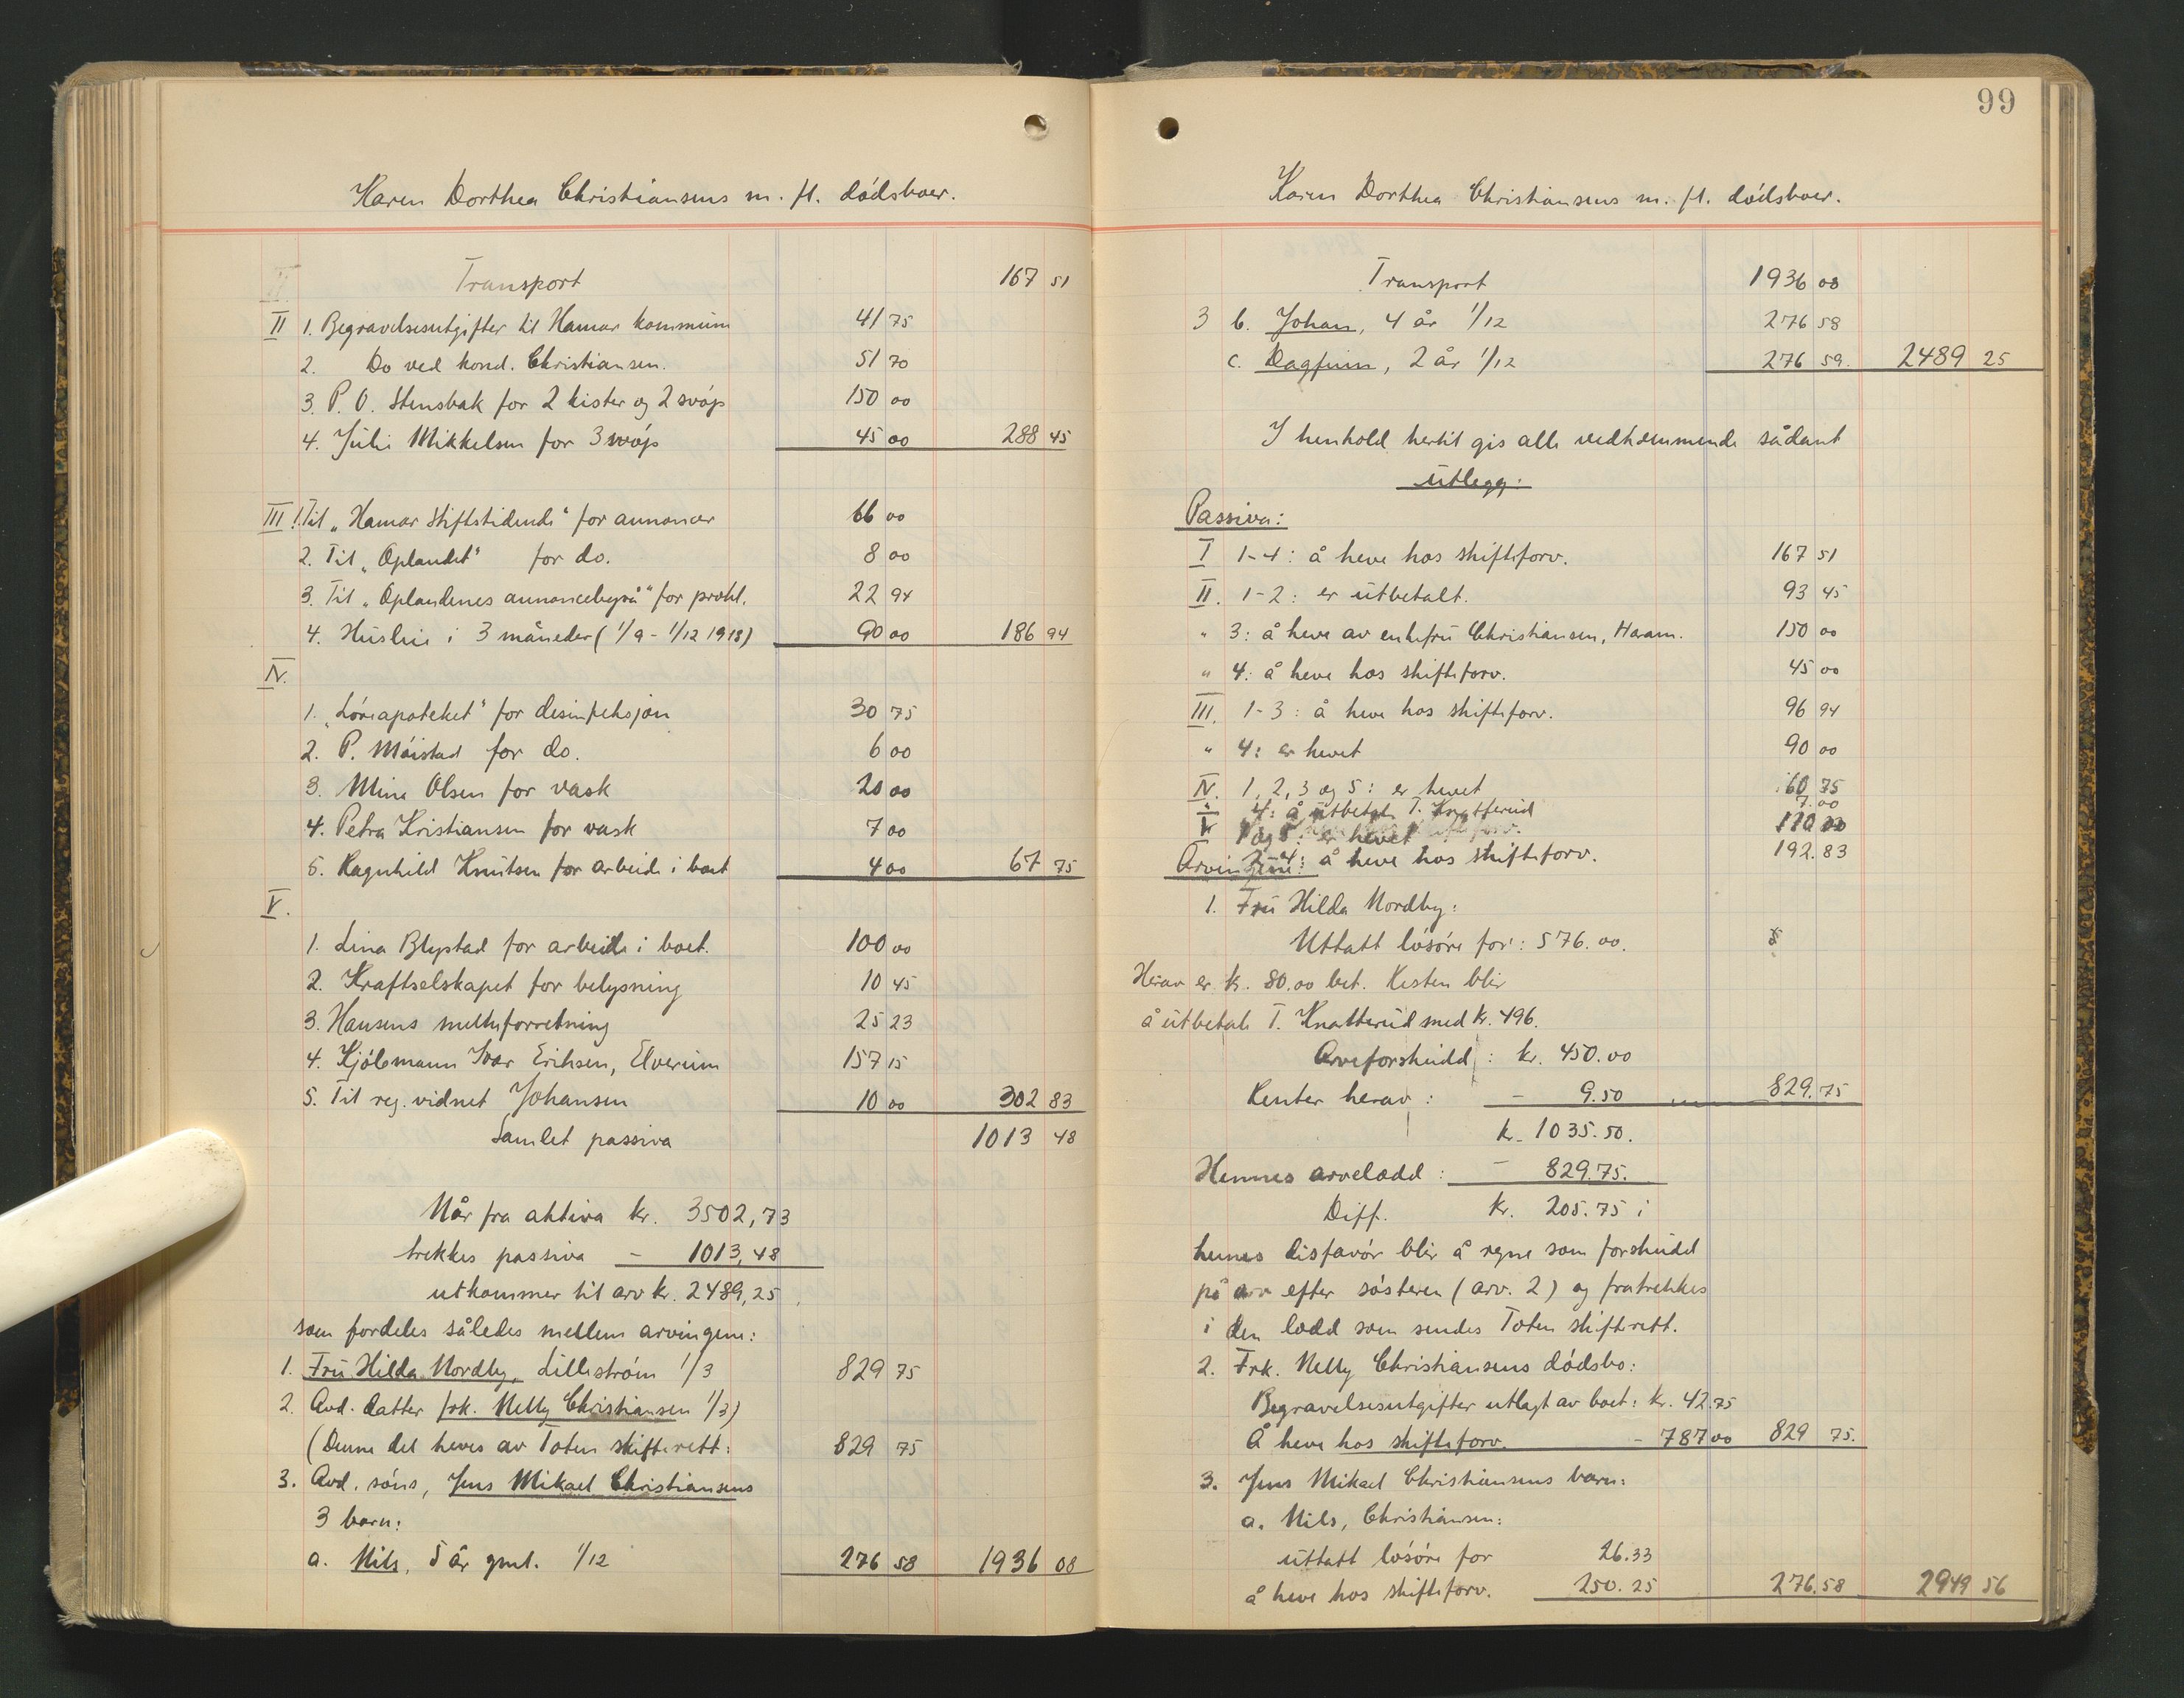 Karen Dorthea Christiansens m. fl. dödsboer.
Transport 167 51
II 1. Begravelsesutgifter til Hamar kommune 41 75
2. Do ved kond. Christiansen. 51 70
3. P. O. Stensbak for 2 kister og 2 svöp 150 00
4. Julie Mikkelsen for 3 svöp 45 00 288 45
III 1. Til "Hamar Stiftstidende" for annoncer 66 00
2. Til "Oplandet" for do. 8 00
3. Til "Oplandenes annoncebyrå" for prokl. 22 94
4. Husleie i 3 måneder (1/9 - 1/12 1918) 90 00 186 94
IV.
1. "Löveapoteket" for desinfeksjon 30 75
2. P. Möistad for do. 6 00
3. Mina Olsen for vask 20 00
4. Petra Kristiansen for vask 7 00
5. Ragnhild Knutsen for arbeide i boet 4 00 67 75
V.
1. Lina Blystad for arbeide i boet. 100 00
2. Kraftselskapet for belysning 10 45
3. Hansens melkeforretning 25 23
4. Kjöbmann Ivar Eriksen, Elverum 157 15
5. Til reg. vidnet Johansen 10 00 302 83
Samlet passiva 1013 48
Når fra aktiva kr. 3502,73
trekkes passiva - 1013,48
utkommer til arv kr. 2489,25
som fordeles således mellem arvingene:
1. Fru Hilda Nordby, Lilleström 1/3 829 75
2. Avd. datter frk. Nelly Christiansen 1/3)
(Denne del heves av Toten skifterett: 829 75
3. Avd. söns, Jens Mikael Christiansens
3 barn:
a. Nils, 5 år gml. 1/12 276 58 1936 08
99
Karen Dorthea Christiansens m. fl. dödsboer.
Transport 1936 08
3 b. Johan, 4 år 1/12 276 58
c. Dagfinn, 2 år 1/12 276 59. 2489 25
I henhold hertil gis alle vedkommende sådant
utlegg:
Passiva:
I 1-4: å heve hos skifteforv. 167 51
II. 1-2: er utbetalt. 93 45
" 3: å heve av enkefru Christiansen, Haram. 150 00
" 4: å heve hos skifteforv. 45 00
III. 1-3: å heve hos skifteforv. 96 94
" 4: er hevet 90 00
IV. 1, 2, 3 og 5: er hevet 60 75
" 4: å utbetale T. Knatterud 7.00
V 1 og 5: er hevet 110 00
2-4: å heve hos skifteforv. 192.83
Arvingene:
1. Fru Hilda Nordby:
Uttatt lösöre for: 576.00.
Herav er kr. 80.00 bet. Resten blir
å utbetale T. Knatterud med kr. 496.
Arveforskudd: kr. 450.00
Renter herav: - 9.50 829.75
kr. 1035.50.
Hennes arvelodd: - 829.75.
Diff. kr. 205.75 i
hennes disfavör blir å regne som forskudd
på arv efter sösteren (arv. 2) og fratrekkes
i den lodd som sendes Toten skifterett.
2. Frk. Nelly Christiansens dödsbo:
Begravelsesutgifter utlagt av boet: kr. 42.75
Å heve hos skifteforv. - 787 00 829 75.
3. Jens Mikael Christiansens barn:
a. Nils, Christiansen:
uttatt lösöre for 26.33
å heve hos skifteforv. 250.25 276.58 2949 56